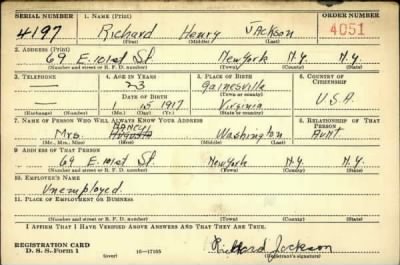 SERIAL NUMBER 1. NAME (Print) ORDER NUMBER
4197 Richard Henry Jackson 4051
(First) (Middle) (Last)
2. ADDRESS (Print)
69 E. 101st St. New York N.Y. N.Y.
(Number and street or R. F. D. number) (Town) (County) (State)
3. TELEPHONE 4. AGE IN YEARS 5. PLACE OF BIRTH 6. COUNTRY OF CITIZENSHIP
— 23 Gainesville
DATE OF BIRTH (Town or county)
— 1 15 1917 Virginia U.S.A.
(Exchange) (Number) (Mo.) (Day) (Yr.) (State or country)
7. NAME OF PERSON WHO WILL ALWAYS KNOW YOUR ADDRESS 8. RELATIONSHIP OF THAT PERSON
Nancy
Mrs. Augusta Washington Aunt.
(Mr., Mrs., Miss) (First) (Middle) (Last)
9. ADDRESS OF THAT PERSON
69 E. 101st St. New York N.Y. N.Y.
(Number and street or R. F. D. number) (Town) (County) (State)
10. EMPLOYER'S NAME
Unemployed.
11. PLACE OF EMPLOYMENT OR BUSINESS
(Number and street or R. F. D. number) (Town) (County) (State)
I AFFIRM THAT I HAVE VERIFIED ABOVE ANSWERS AND THAT THEY ARE TRUE.
REGISTRATION CARD
D. S. S. Form 1 (over) 16—17105 Richard Jackson
(Registrant's signature)